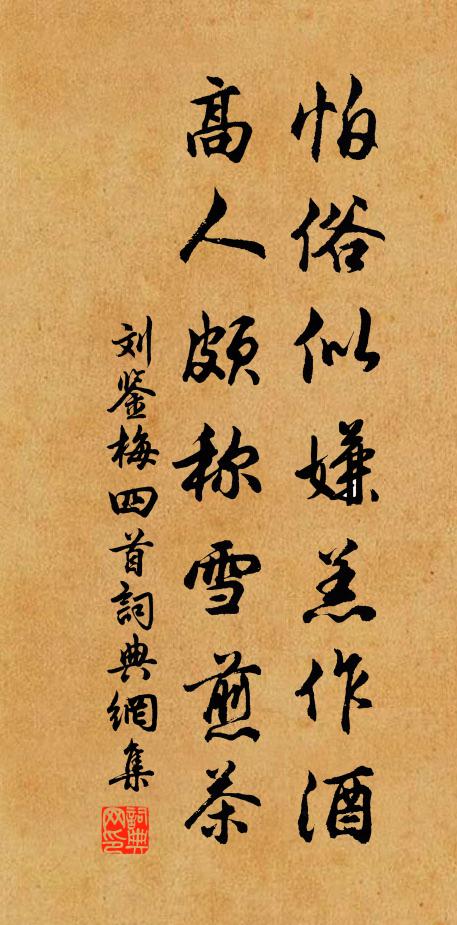 怕俗似嫌羔作酒
高人颇称雪煎茶
刘鉴梅四首詞典網集
詞典网印